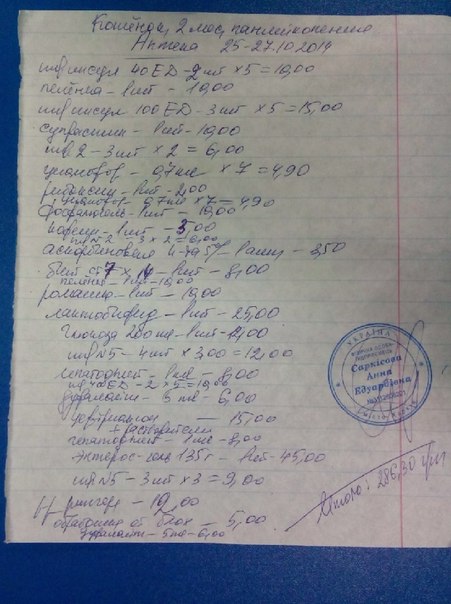 Кошёнок, 2 мес, панлейкопения
Аптека 25-27.10.2014
шв инсул 40 ED - 2 шт × 5 = 10,00
пелёнка - 1 шт - 10,00
шв инсул 100 ED - 3 шт × 5 = 15,00
супрастин - 1 шт - 10,00
шв 2 - 3 шт × 2 = 6,00
0,7 мл × 7 = 4,90
рибоксин - 1 шт - 2,00
0,7 мл × 7 = 4,90
фосфалюгель - 1 шт - 10,00
1 шт - 5,00
шв №2 3 × 2 = 6,00
аскорбиновая 5% - 3,50
бинт 7 × 14 - 1 шт - 8,00
пелёнка - 1 шт - 10,00
1 шт - 10,00
лактобифид - 1 шт - 25,00
глюкоза 200 мл - 1 шт - 12,00
шв №5 - 4 шт × 3,00 = 12,00
гепатоджект - 1 мл - 8,00
шв 40 ED - 2 × 5 = 10,00
дуфалайт - 5 мл - 6,00
цефтриаксон - 15,00
+ растворитель
гепатоджект - 1 мл - 8,00
Энтерос-гель 135 г - 1 шт - 45,00
шв №5 - 3 шт × 3 = 9,00
рингер - 12,00
обработка от блох - 5,00
дуфалайт - 5 мл - 6,00
Итого: 286,30 грн
УКРАЇНА
Саркісова
Анна
Едуардівна